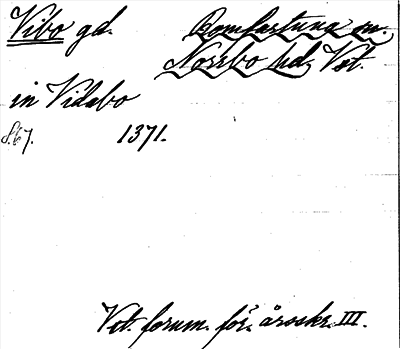 Vibo gd. Romfartuna sn.
Norrbo hd, Vst.
in Vidabo
f. 67. 1371.
Vst. fornm. för. årsskr. III.